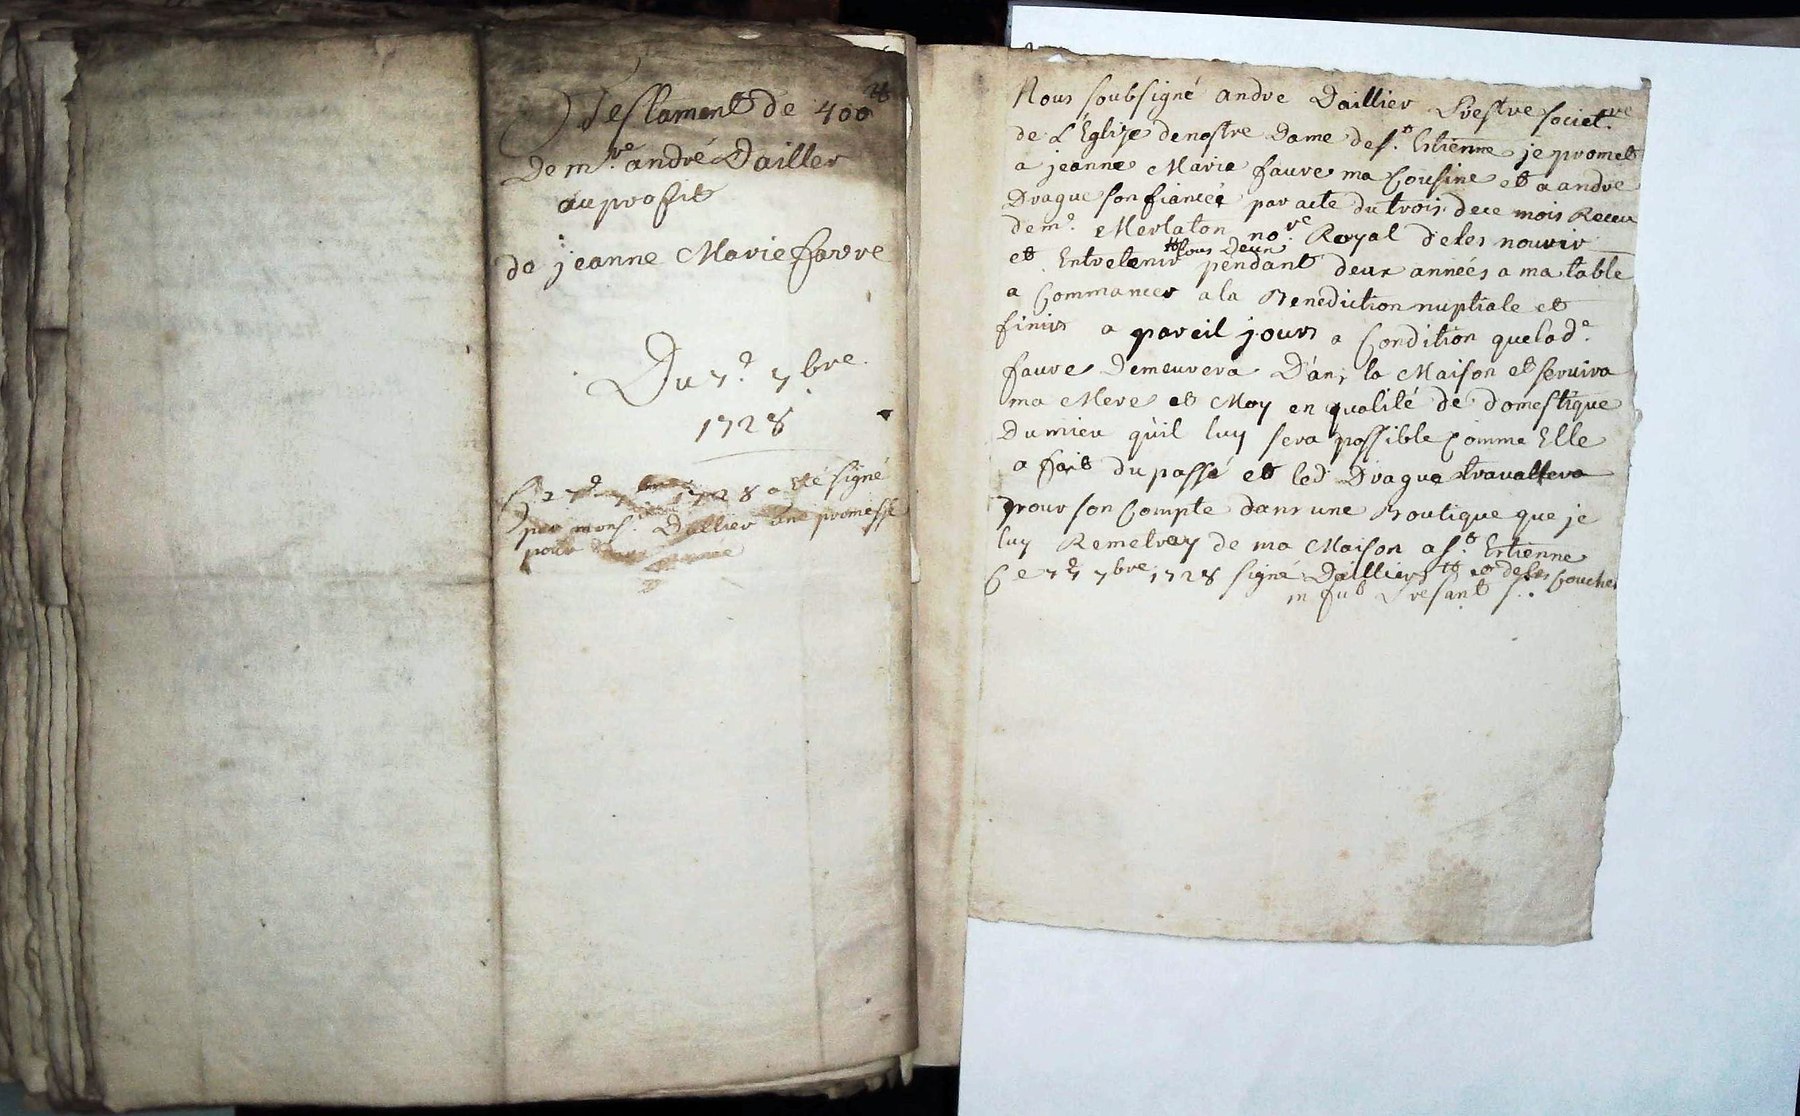 Testament de 400 ₶
De m.re andré Dailler
au profit
de jeanne Marie favre
Du 7.e 7bre
1728
Ce 7e 1728 a été signé
par mons.r Dallier une promesse
pour
Nous soubsigné andre Daillier Prestre societ.re
de L'Eglize de nostre Dame de s.t Estienne je promet
a jeanne Marie faure ma Cousine et a andre
Drague son fiancée par acte du trois de ce mois Receu
de m.e Merlaton no.re Royal de les nourir
et Entretenir tous deux pendant deux années a ma table
a Commancer a la Benediction nuptiale et
finir a pareil jours a Condition que lad.e
faure Demeurera Dans la Maison et servira
ma Mere et Moy en qualité de domestique
Du mieu qu'il luy sera possible Comme Elle
a fait du passé et led. Drague travallera
pour son Compte dans une Boutique que je
luy Remetray de ma Maison a s.t Estienne
Ce 7e 7bre 1728 signé Daillier et de les Couches
in fut Presant